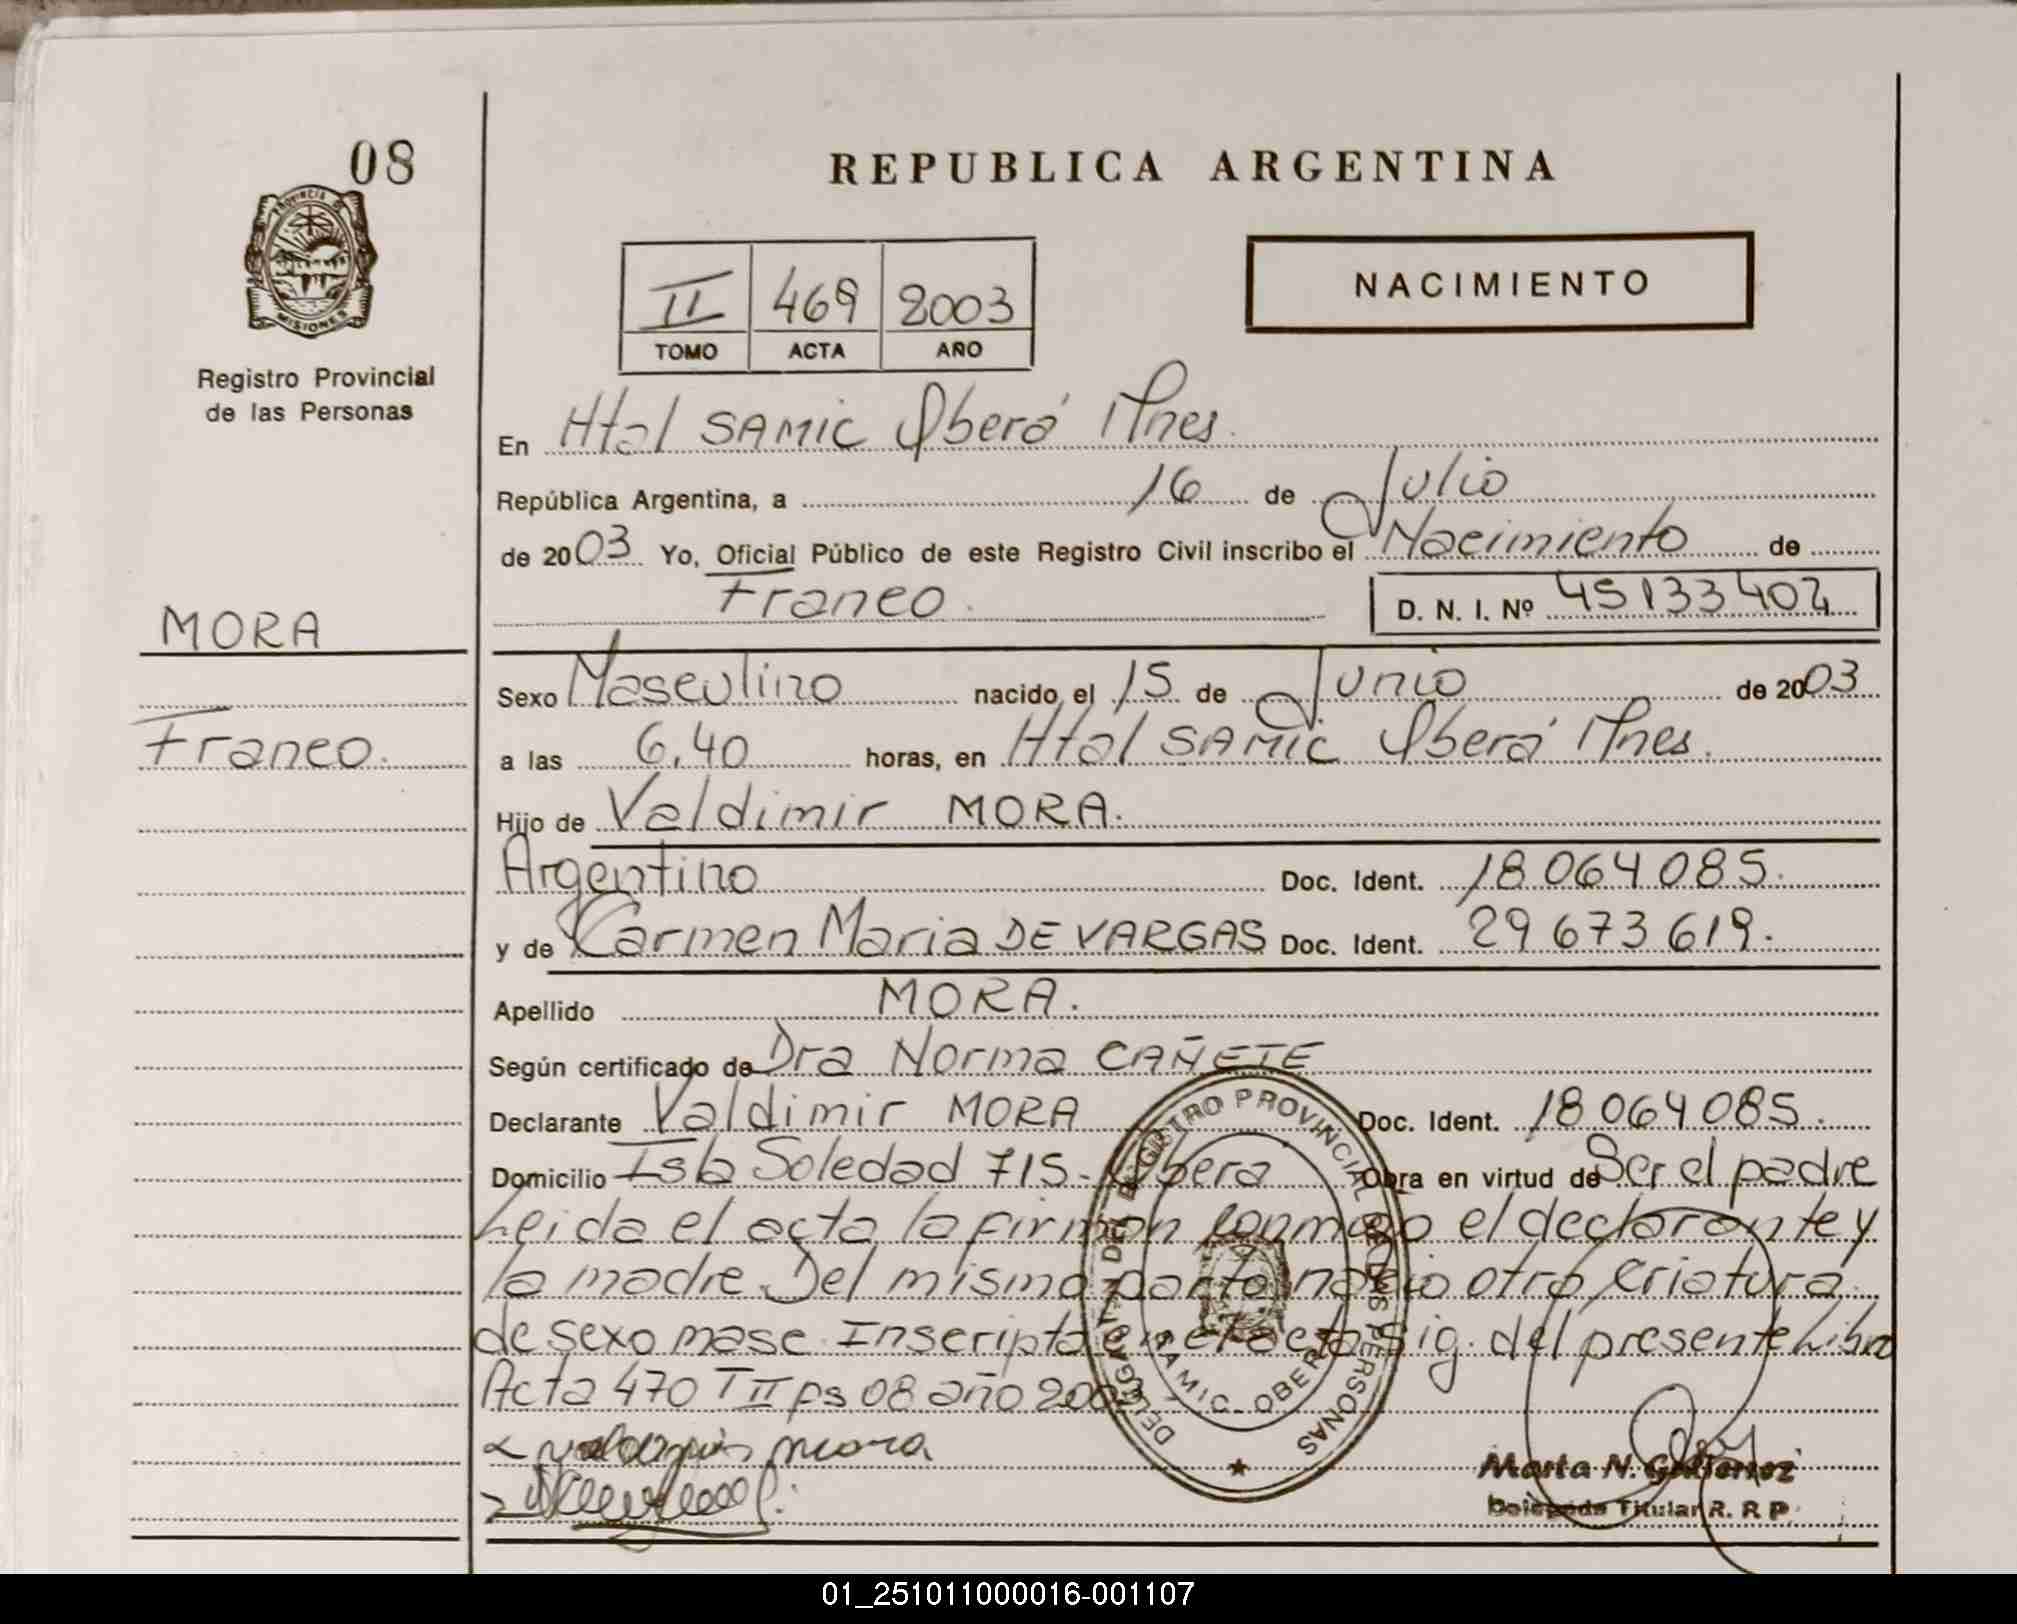 08
REPUBLICA ARGENTINA
PROVINCIA DE
MISIONES
Registro Provincial
de las Personas
II 469 2003
TOMO ACTA AÑO
NACIMIENTO
En Htal SAMIC Oberá Mnes.
República Argentina, a 16 de Julio
de 2003 Yo, Oficial Público de este Registro Civil inscribo el Nacimiento de
Franco. D. N. I. Nº 45133402
MORA
Franco.
Sexo Masculino nacido el 15 de Junio de 2003
a las 6,40 horas, en Htal SAMIC Oberá Mnes.
Hijo de Valdimir MORA.
Argentino Doc. Ident. 18 064 085.
y de Carmen Maria DE VARGAS Doc. Ident. 29 673 619.
Apellido MORA.
Según certificado de Dra Norma CAÑETE
Declarante Valdimir MORA Doc. Ident. 18 064 085.
Domicilio Isla Soledad 715- Obera Obra en virtud de Ser el padre
Leida el acta la firman conmigo el declarante y
la madre. Del mismo parto nacio otra criatura
de sexo masc. Inscripta en el acta sig. del presente Libro
Acta 470 T II fs 08 año 2003
mora
DELEGACION DEL REGISTRO PROVINCIAL DE LAS PERSONAS
SAMIC OBERA
Marta N. Gutierrez
Delegada Titular R. R. P.
01_251011000016-001107